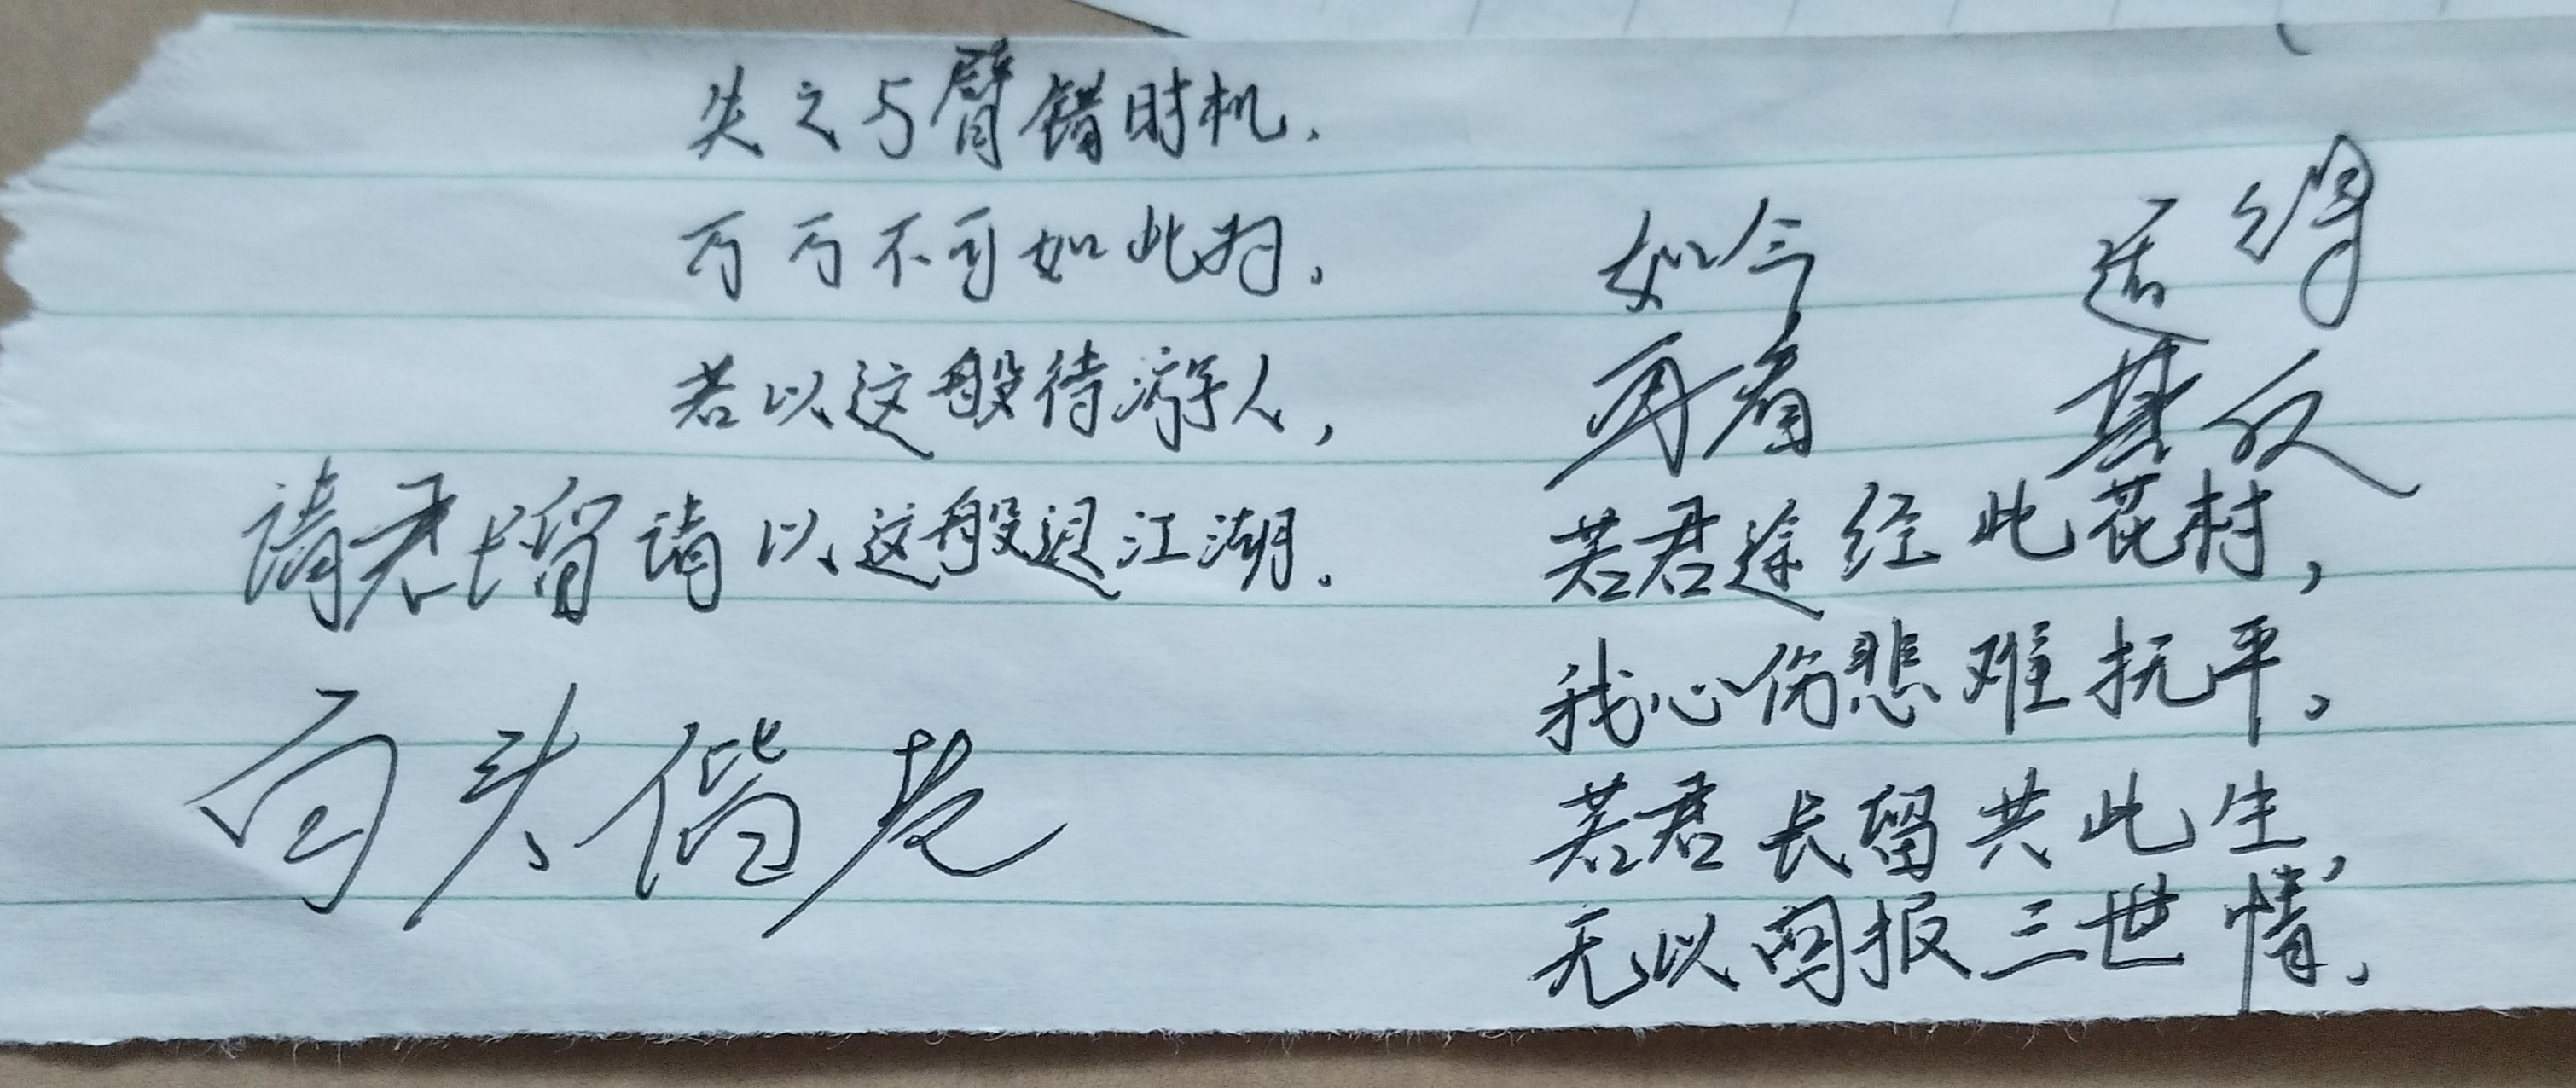 失之与臂错时机.
万万不可如此.
若以这般待游人,
请君 留 请以这般退江湖.
白头偕老
如今 适得
再看 其反
若君途经此花村,
我心伤悲难抚平.
若君长留共此生,
无以 报三世情.